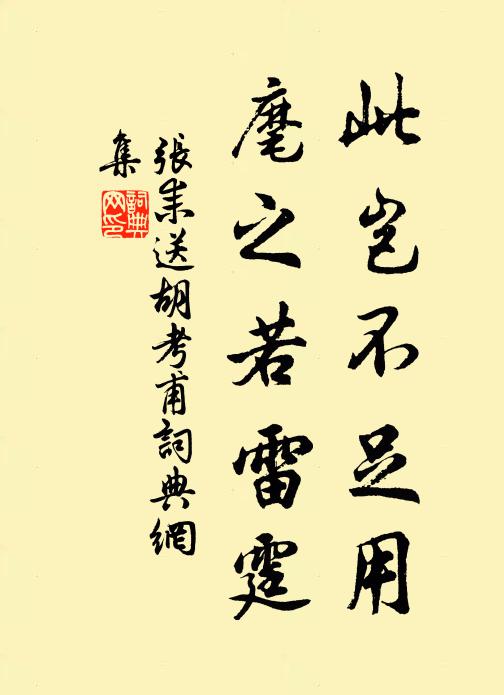 此岂不足用
麾之若雷霆
張耒送胡考甫詞典網
集
詞典網印